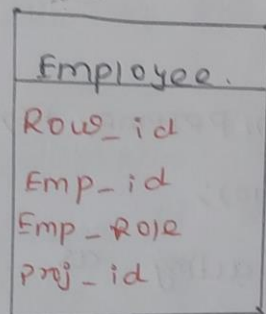 Employee.
Row_id
Emp_id
Emp_Role
Proj_id